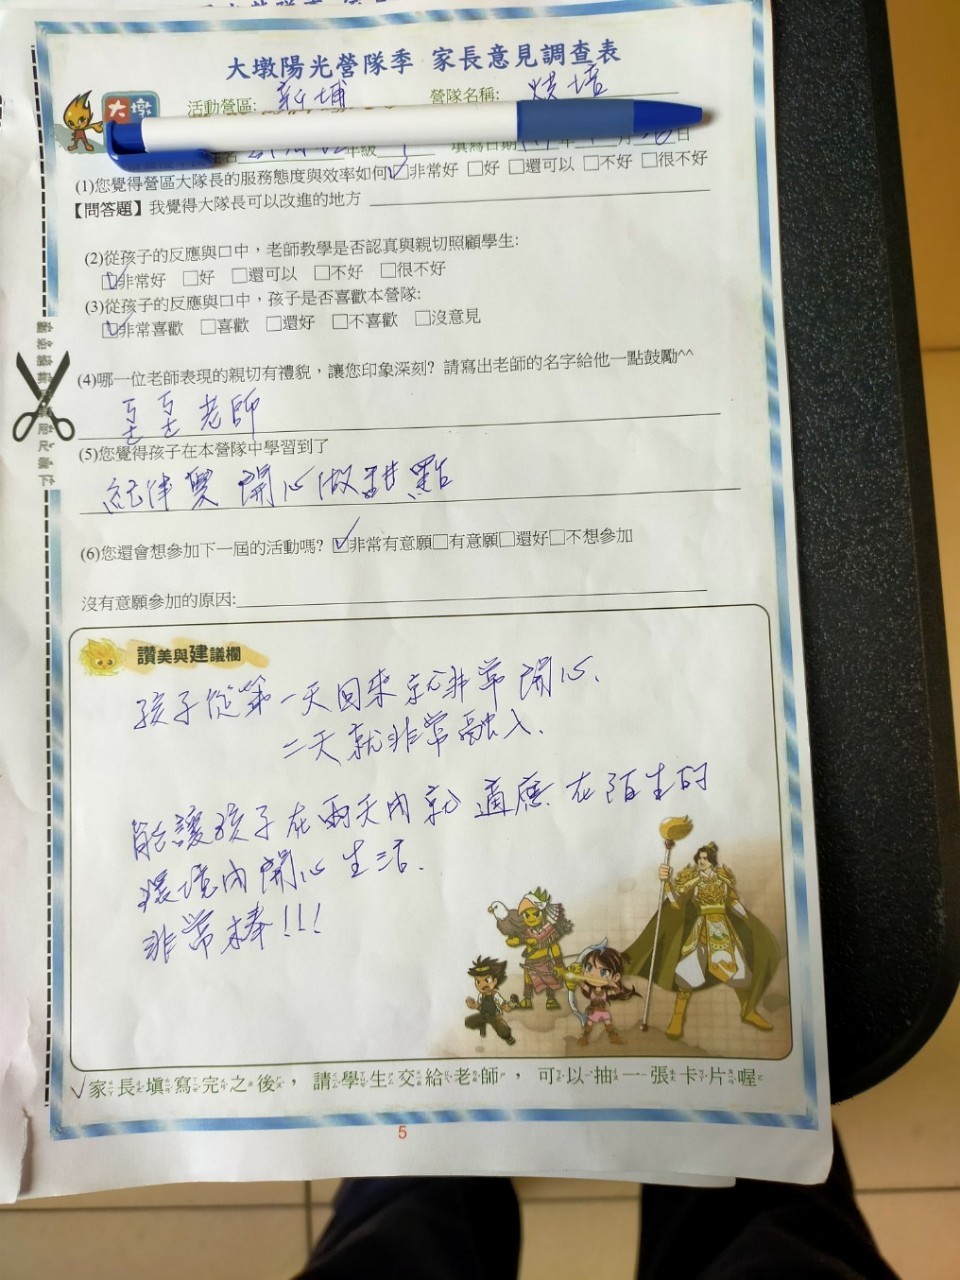 大墩陽光營隊季 家長意見調查表
大墩
活動營區: 新埔 營隊名稱: 烘培
年級 填寫日期 年 月 日
(1)您覺得營區大隊長的服務態度與效率如何 ☑非常好 □好 □還可以 □不好 □很不好
【問答題】我覺得大隊長可以改進的地方
(2)從孩子的反應與口中，老師教學是否認真與親切照顧學生:
☑非常好 □好 □還可以 □不好 □很不好
(3)從孩子的反應與口中，孩子是否喜歡本營隊:
☑非常喜歡 □喜歡 □還好 □不喜歡 □沒意見
(4)哪一位老師表現的親切有禮貌，讓您印象深刻? 請寫出老師的名字給他一點鼓勵^^
老師
(5)您覺得孩子在本營隊中學習到了
紀律與 開心做甜點
(6)您還會想參加下一屆的活動嗎? ☑非常有意願□有意願□還好□不想參加
沒有意願參加的原因:
讚美與建議欄
孩子從第一天回來就非常開心、
二天就非常融入、
能讓孩子在兩天內就適應在陌生的
環境內開心生活.
非常棒!!!
✓家長填寫完之後，請學生交給老師，可以抽一張卡片喔
5